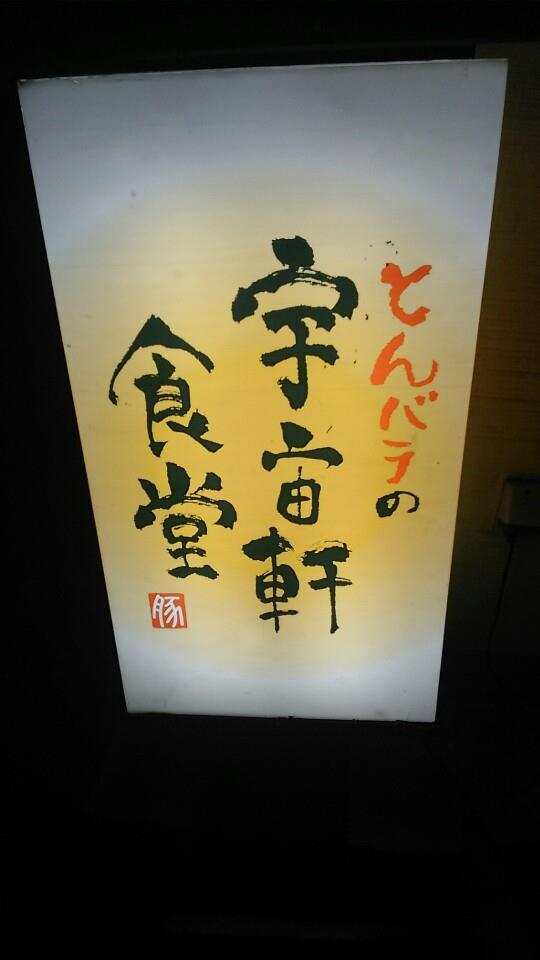 とんバラの
宇宙軒
食堂
豚